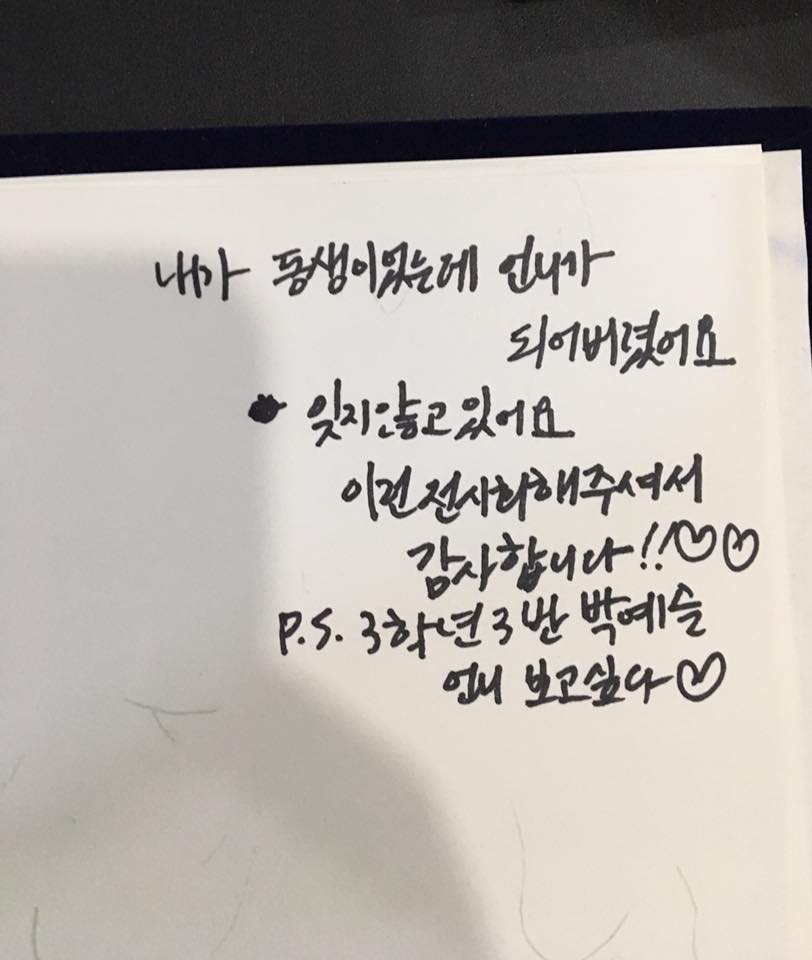 내가 동생이었는데 언니가
되어버렸어요
잊지않고있어요
이런전시회해주셔서
감사합니다!!♡♡
P.S. 3학년3반 박예슬
언니 보고싶다♡